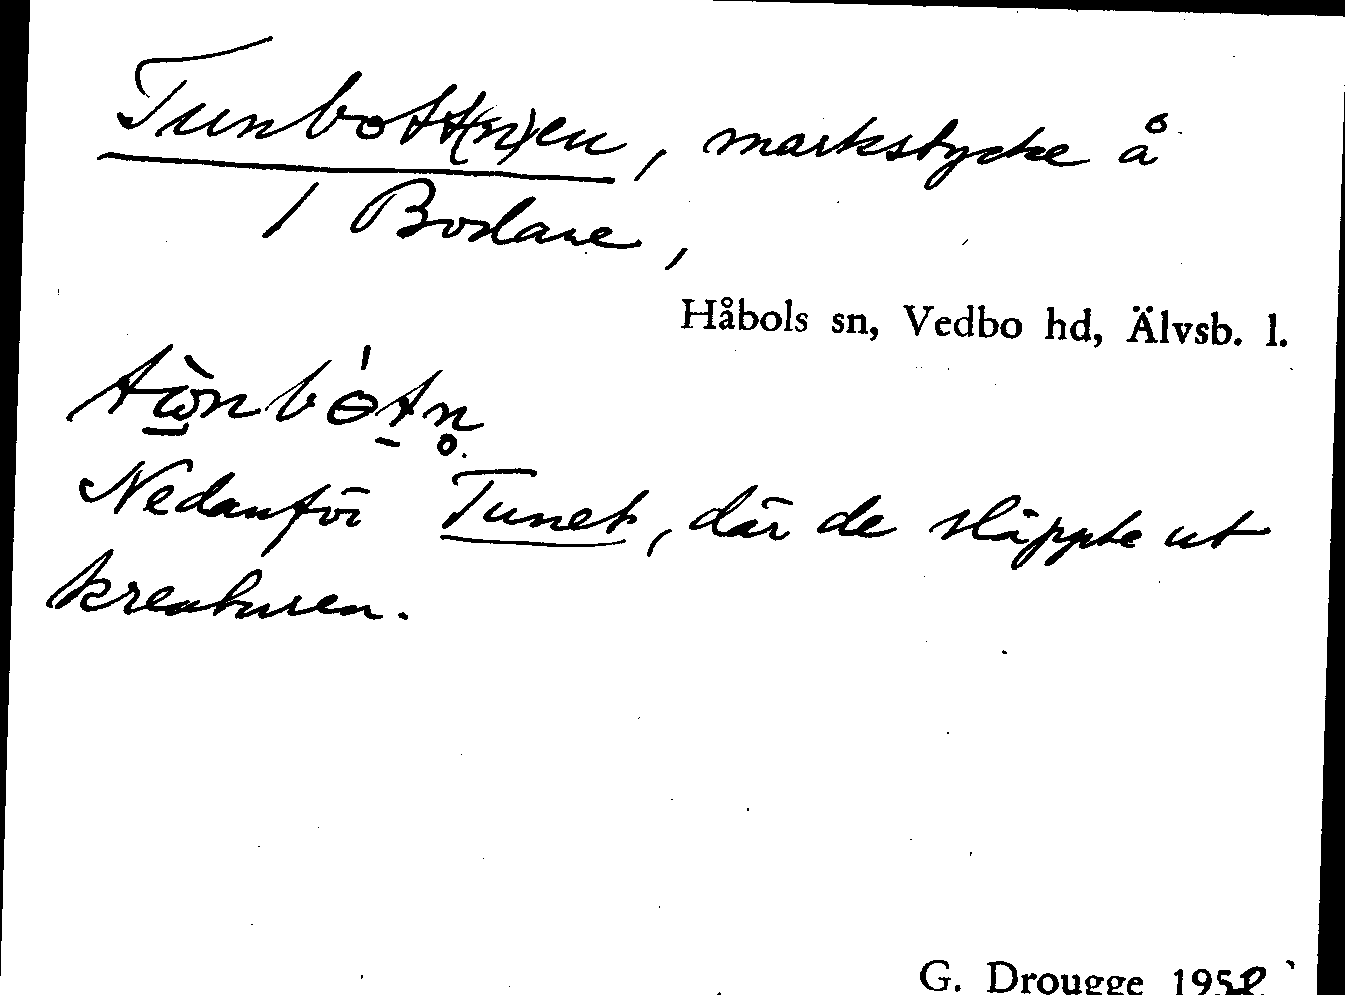 Tunbott(n)en, markstycke å
1 Bodane,
Håbols sn, Vedbo hd, Älvsb. l.
Nedanför Tunet, där de släppte ut
kreaturen.
G. Drougge 195